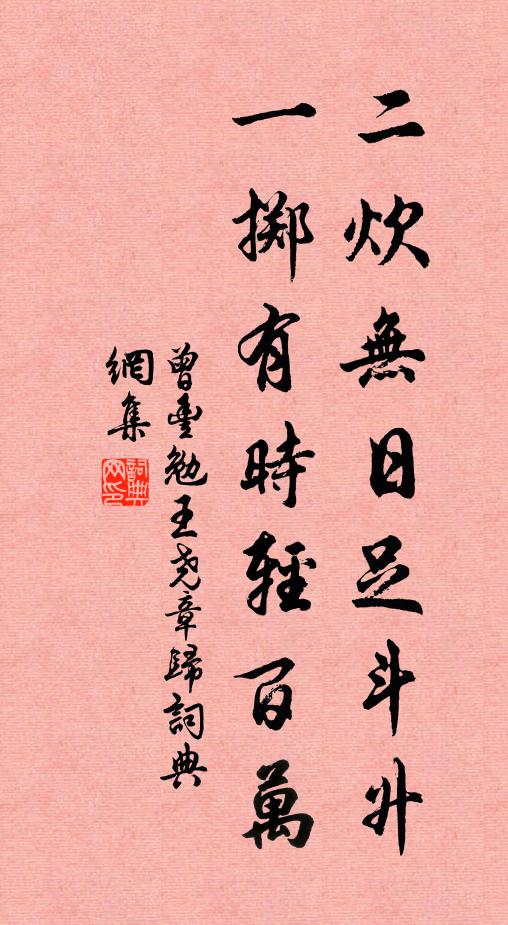 二炊無日足斗升
一擲有時輕百萬
曾豐勉王尧章歸詞典
網集
詞典網印